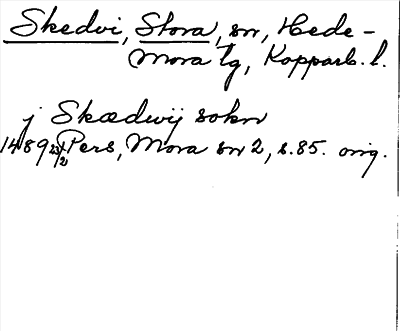 Skedvi, Stora, sn, Hede-
mora tg, Kopparb. l.
j Skædwij sokn
1489 23/2 Pers, Mora sn 2, s.85. orig.